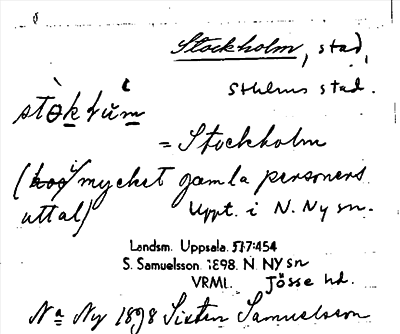 Stockholm, stad,
Sthlms stad.
stòkhúm
= Stockholm
(hos i mycket gamla personers
uttal) Uppt. i N. Ny sn.
Landsm. Uppsala. 517:454
S. Samuelsson. 1898. N. NY sn
VRML. Jösse hd.
Na Ny 1898 Sixten Samuelsson